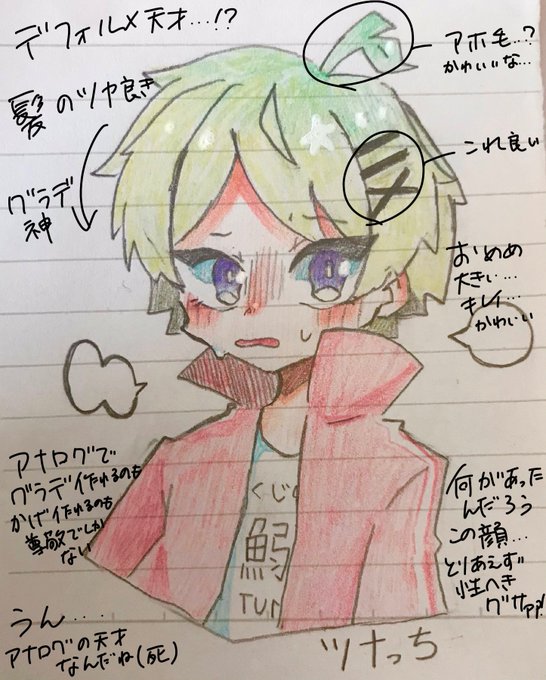 デフォルメ天才…!?
アホ毛…?
かわいいな…
髪のツヤ良き
これ良い
グラデ
神
おめめ
大きい…
キレイ…
かわいい
アナログで
グラデ作れるのも
かげ作れるのも
尊敬でしか
ない
くじ
TUN
何があった
んだろう
この顔…
とりあえず
性へき
うん....
アナログの天才
なんだね(死)
ツナっち